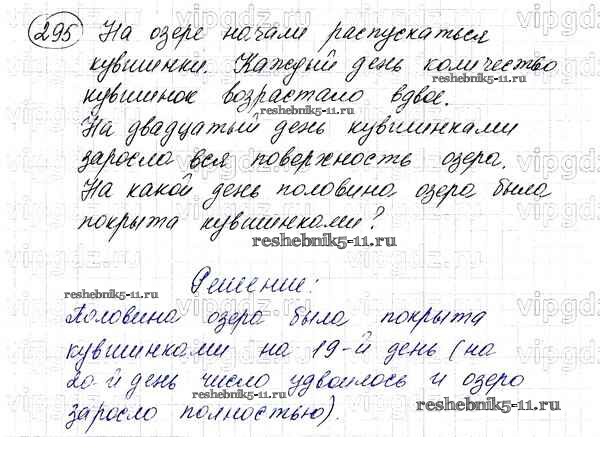 295 На озере начали распускаться
кувшинки. Каждый день количество
reshebnik5-11.ru
кувшинок возрастало вдвое.
На двадцатый день кувшинками
заросла вся поверхность озера.
На какой день половина озера была
покрыта кувшинками?
reshebnik5-11.ru
Решение:
reshebnik5-11.ru
Половина озера была покрыта
кувшинками на 19-й день (на
20-й день число удвоилось и озеро
заросло полностью).
reshebnik5-11.ru
vipgdz.ru